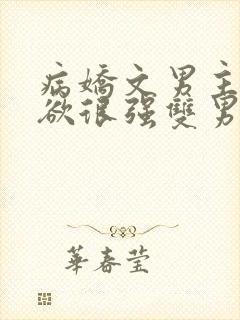 病嬌文男主
欲很强雙男
華春莹